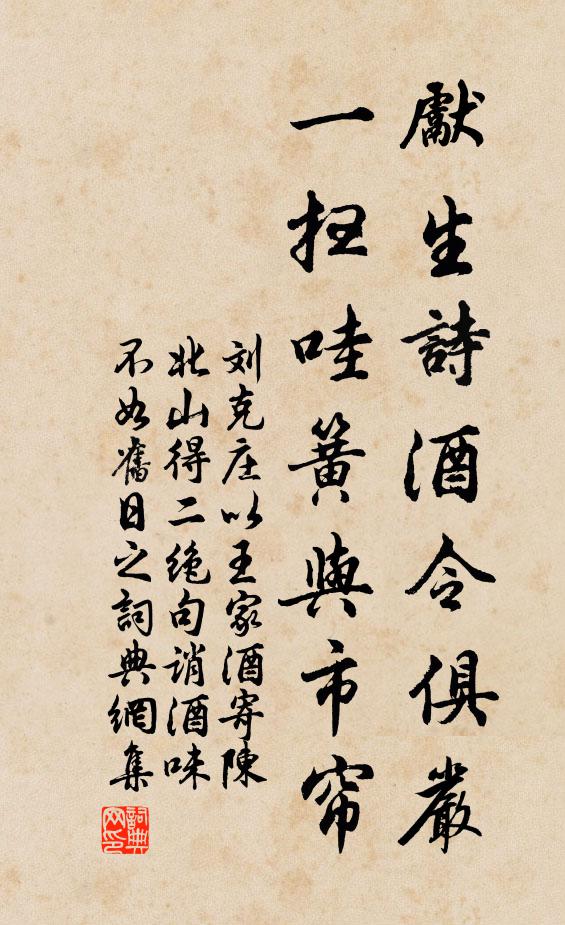 獻生詩酒令俱嚴
一掃哇簧與市帘
刘克庄以王家酒寄陳
北山得二絶句誚酒味
不如舊日之詞典網集
詞典网印